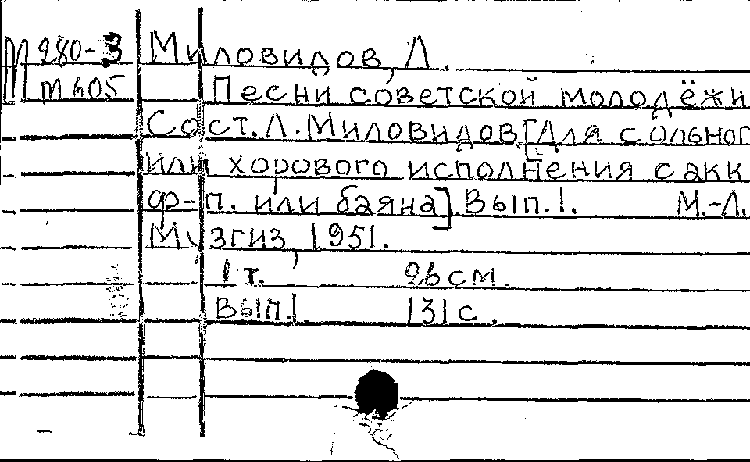 М 280-3 Миловидов, Л.
м 605 Песни советской молодёжи
Сост. Л. Миловидов [Для сольног
или хорового исполнения с акк
ф-п. или баяна]. Вып. 1. М.-Л.
Музгиз, 1951.
1 т. 26 см.
Вып. 1. 131 с.